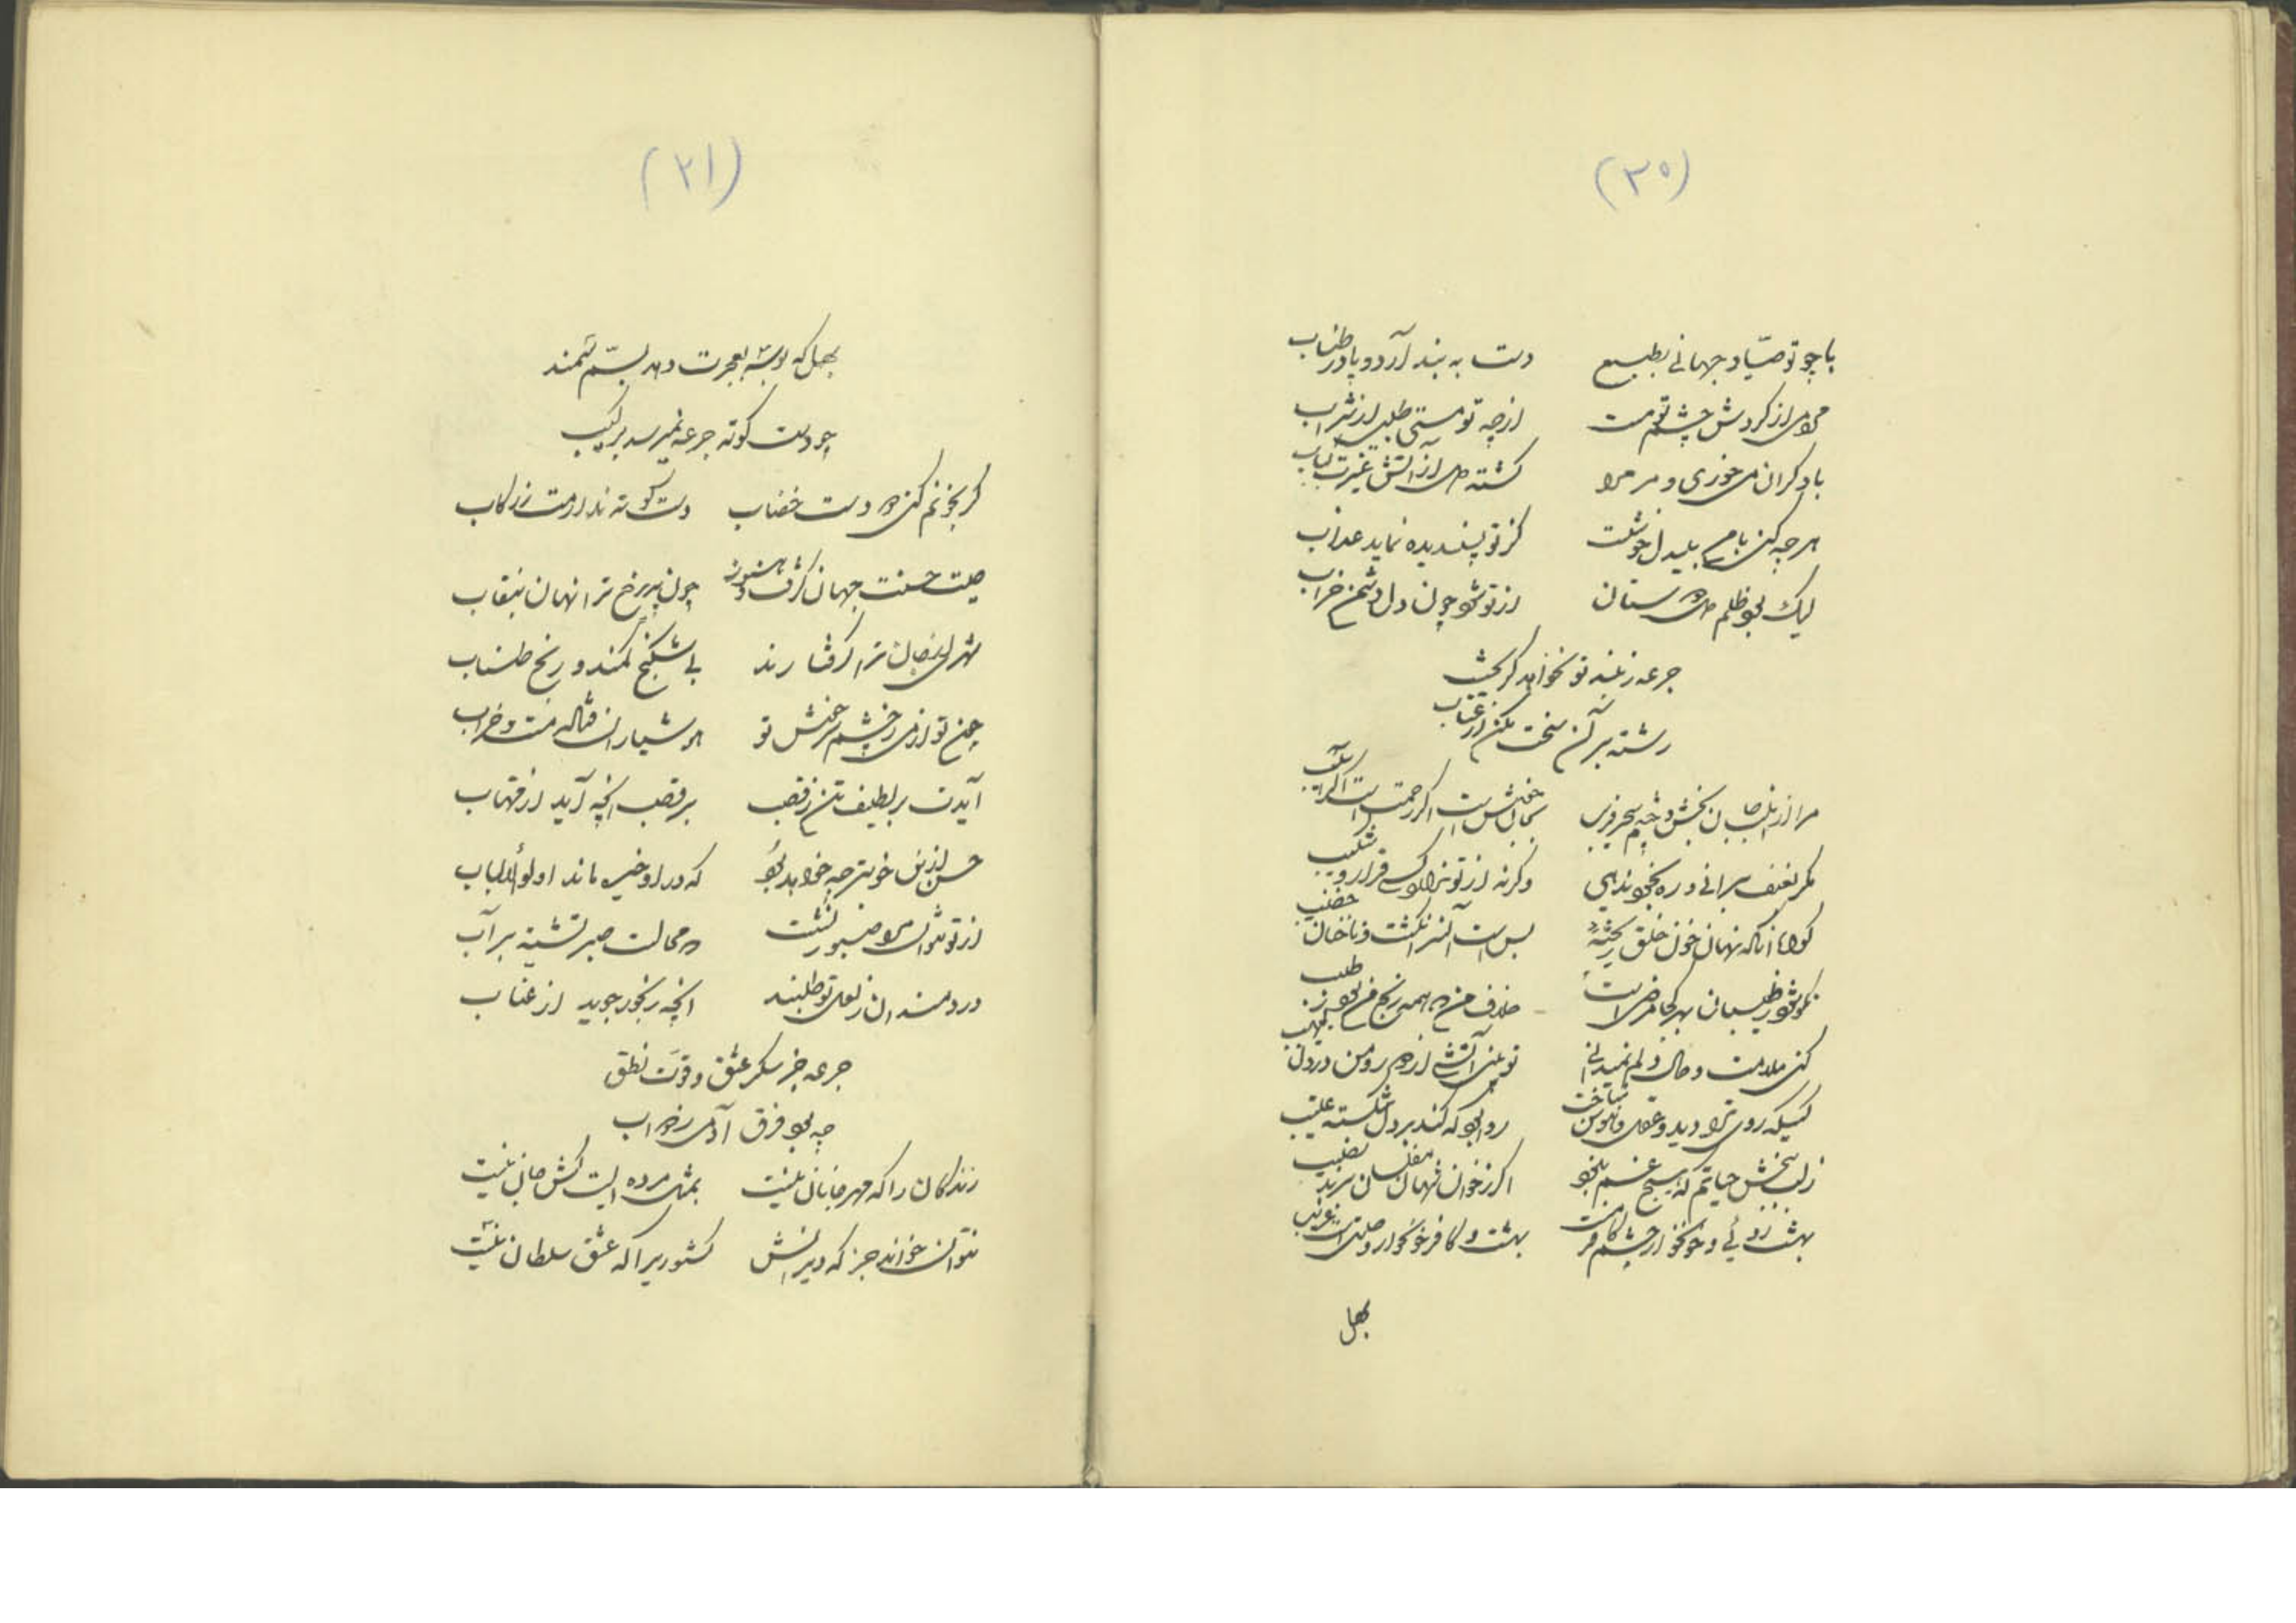 (۳۰)
با چو تو صیاد جهانی بطبع دست به بند آرد و پا در طناب
مردمی از گردش چشم تو مست از چه تو مستی طلبی از شراب
با دگران می خوری و مر مرا کشته می از آتش غیرت کباب
هر چه کنی با من بیدل خوشست کز تو پسندیده نماید عذاب
لیک بود ظلم ستان از تو شود چون دل دشمن خراب
جرعه ز بند تو نخواهد گریخت
رشته بر آن سخت مکن از عتاب
مرا از لب جان بخش و چشم سحر فریب اگر رحمت است اگر
مگر بعنف برانی و ره بخود ندهی وگرنه از تو کرا قرار و شکیب
گواه آنکه نهان خون خلق ریخته بس است آن سر انگشت و ناخنان خضیب
نکو شود ز طبیبان بهر کجا مرضی است خلاف من همه رنج من بود ز طبیب
کنی ملامت و حال دلم نمیدانی تو بینی آتشی از دور و من در دل لهیب
کسیکه روی ترا دید و عقل و هوش نباخت روا بود که کند بر دل شکسته عتیب
ز لب ببخش حیاتم که هیچ غم نبود اگر ز خوان شهان مفلسان برند نصیب
بهشت روئی و خونخوار چشم کافرت بهشت و کافر خونخوار حالتی است غریب
بهل
(۳۱)
بهل که بوسه بجرعت دهد لبت هر چند
چو دست کوته جرعه نمیرسد برکیب
گر بخونم کنی دست خضاب دست کوته ندارمت ز رکاب
صیت حسنت جهان گرفت و هنوز چون پری رخ ترا نهان بنقاب
شهری ایجان ترا گرفتارند بی شکنج کمند و رنج طناب
چون تو از می ز چشم سرخوش تو هوشیاران فتاده مست و خراب
آیدت بر لطیف تن ز قصب بر قصب آنچه آید از مهتاب
حسن ازین خوبتر چه خواهد بود که در او خیره ماند اولوالالباب
از تو نتوان مرا صبور نشست که محالست صبر تشنه بر آب
دردمندان ز لعل تو طلبند آنچه رنجور جوید از عناب
جرعه جز سکر عشق و قوت نطق
چه بود فرق آدمی ز دواب
زندگان را که مهر جانان نیست بمثل مرده ایست کش جان نیست
نتوان خواند جز که ویرانش کشوریرا که عشق سلطان نیست